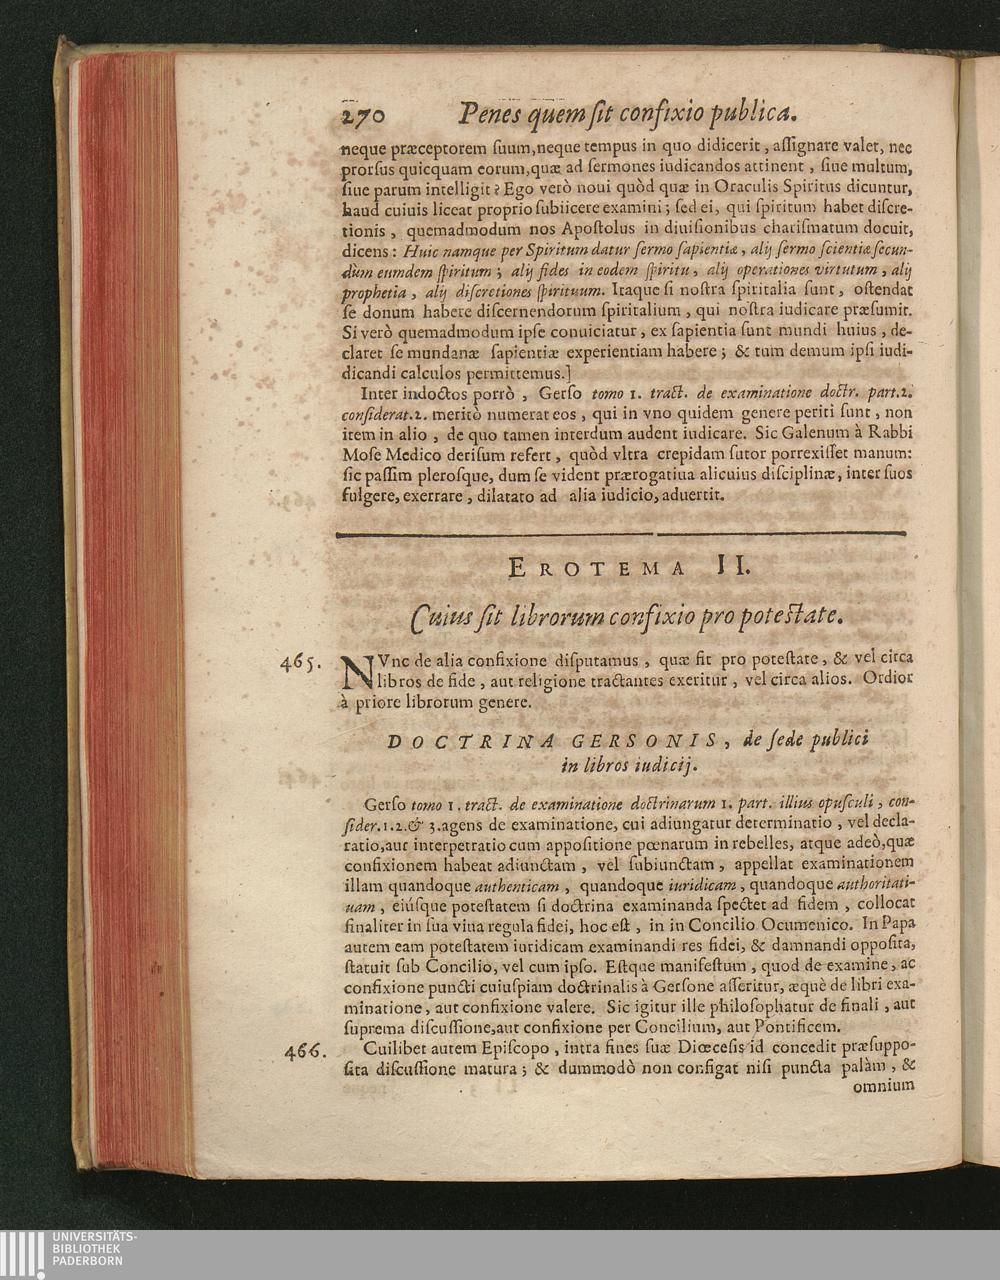 270 Penes quem ſit confixio publica.
neque præceptorem ſuum, neque tempus in quo didicerit, aſſignare valet, nec
prorſus quicquam eorum, quæ ad ſermones iudicandos attinent, ſiue multum,
ſiue parum intelligit? Ego verò noui quòd quæ in Oraculis Spiritus dicuntur,
haud cuiuis liceat proprio ſubiicere examini; ſed ei, qui ſpiritum habet diſcre-
tionis, quemadmodum nos Apoſtolus in diuiſionibus chariſmatum docuit,
dicens: Huic namque per Spiritum datur ſermo ſapientiæ, alij ſermo ſcientiæ ſecun-
dùm eumdem ſpiritum; alij fides in eodem ſpiritu, alij operationes virtutum, alij
prophetia, alij diſcretiones ſpirituum. Itaque ſi noſtra ſpiritalia ſunt, oſtendat
ſe donum habere diſcernendorum ſpiritalium, qui noſtra iudicare præſumit.
Si verò quemadmodum ipſe conuiciatur, ex ſapientia ſunt mundi huius, de-
claret ſe mundanæ ſapientiæ experientiam habere; & tum demum ipſi iudi-
dicandi calculos permittemus.]
Inter indoctos porrò, Gerſo tomo 1. tract. de examinatione doctr. part. 2.
conſiderat. 2. meritò numerat eos, qui in vno quidem genere periti ſunt, non
item in alio, de quo tamen interdum audent iudicare. Sic Galenum à Rabbi
Moſe Medico deriſum refert, quòd vltra crepidam ſutor porrexiſſet manum:
ſic paſſim pleroſque, dum ſe vident prærogatiua alicuius diſciplinæ, inter ſuos
fulgere, exerrare, dilatato ad alia iudicio, aduertit.
EROTEMA II.
Cuius ſit librorum confixio pro poteſtate.
465. NVnc de alia confixione diſputamus, quæ fit pro poteſtate, & vel circa
libros de fide, aut religione tractantes exeritur, vel circa alios. Ordior
à priore librorum genere.
DOCTRINA GERSONIS, de ſede publici
in libros iudicij.
Gerſo tomo 1. tract. de examinatione doctrinarum 1. part. illius opuſculi, con-
ſider. 1. 2. & 3. agens de examinatione, cui adiungatur determinatio, vel decla-
ratio, aut interpretatio cum appoſitione pœnarum in rebelles, atque adeò, quæ
confixionem habeat adiunctam, vel ſubiunctam, appellat examinationem
illam quandoque authenticam, quandoque iuridicam, quandoque authoritati-
uam, eiúſque poteſtatem ſi doctrina examinanda ſpectet ad fidem, collocat
finaliter in ſua viua regula fidei, hoc eſt, in in Concilio Ocumenico. In Papa
autem eam poteſtatem iuridicam examinandi res fidei, & damnandi oppoſita,
ſtatuit ſub Concilio, vel cum ipſo. Eſtque manifeſtum, quod de examine, ac
confixione puncti cuiuſpiam doctrinalis à Gerſone aſſeritur, æquè de libri exa-
minatione, aut confixione valere. Sic igitur ille philoſophatur de finali, aut
ſuprema diſcuſſione, aut confixione per Concilium, aut Pontificem.
466. Cuilibet autem Epiſcopo, intra fines ſuæ Diœceſis id concedit præſuppo-
ſita diſcuſſione matura; & dummodò non configat niſi puncta palàm, &
omnium
UNIVERSITÄTS-
BIBLIOTHEK
PADERBORN